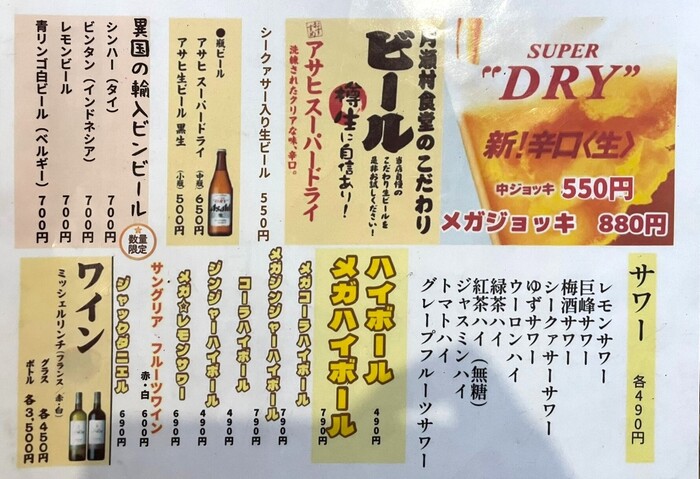 SUPER
“DRY”
新！辛口〈生〉
中ジョッキ 550円
メガジョッキ 880円
月瀬村食堂のこだわり
ビール
樽生に自信あり！
当店自慢の
こだわり生ビールを
是非お試しください！
アサヒスーパードライ
洗練されたクリアな味、辛口。
シークァサー入り生ビール 550円
●瓶ビール
アサヒスーパードライ (中瓶) 650円
アサヒ生ビール黒生 (小瓶) 500円
Asahi
異国の輸入ビンビール
シンハー（タイ） 700円
ビンタン（インドネシア） 700円
レモンビール 700円
青リンゴ白ビール（ベルギー） 700円
サワー 各490円
レモンサワー
巨峰サワー
梅酒サワー
シークァーサーサワー
ゆずサワー
ウーロンハイ
緑茶ハイ
紅茶ハイ（無糖）
ジャスミンハイ
トマトハイ
グレープフルーツサワー
ハイボール 490円
メガハイボール 790円
メガコーラハイボール 790円
コーラハイボール 490円
メガジンジャーハイボール 790円
ジンジャーハイボール 490円
メガ☆レモンサワー 690円
数量
限定
サングリア フルーツワイン 赤・白 600円
ジャックダニエル 690円
ワイン
ミッシェルリンチ（フランス（赤・白）
グラス 各450円
ボトル 各3,500円